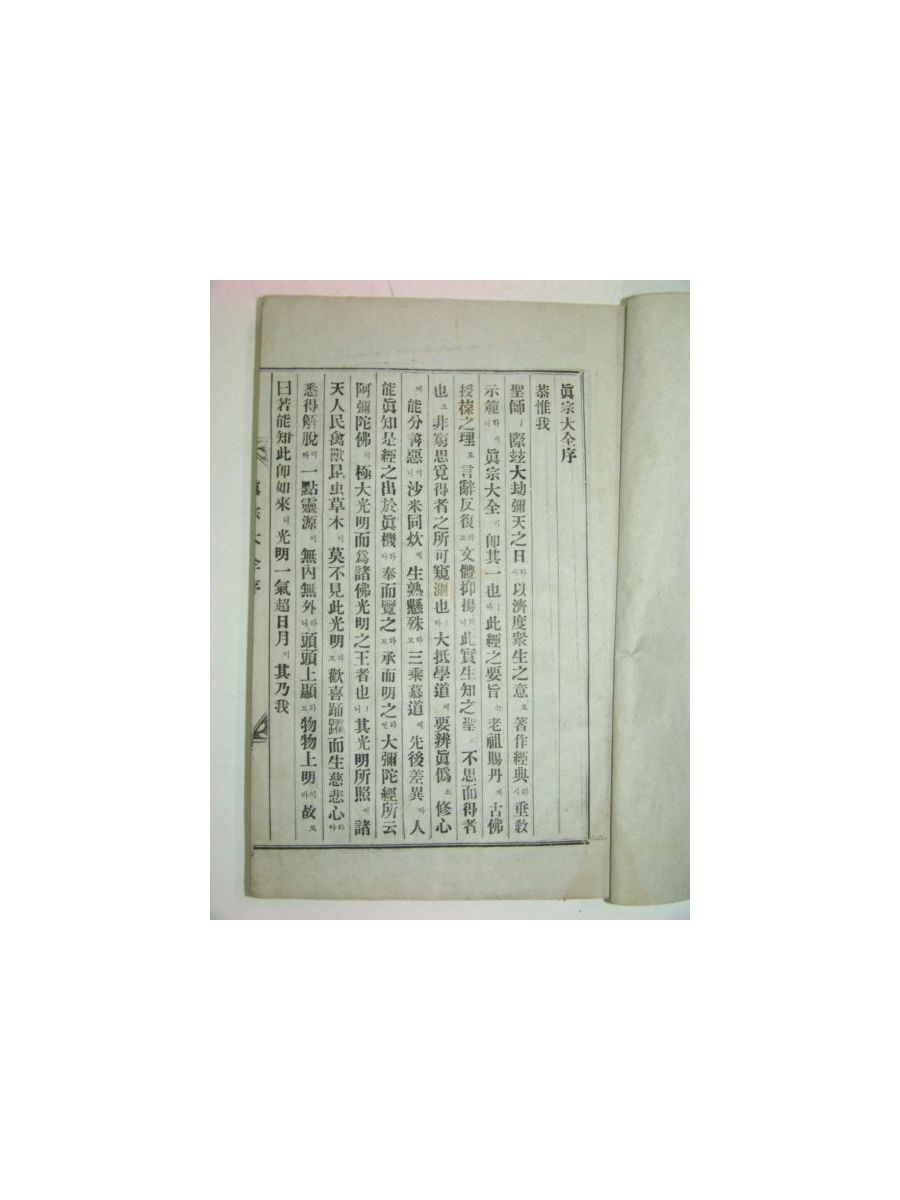 眞宗大全序
恭惟我
聖師ㅣ際玆大劫彌天之日하사以濟度衆生之意로著作經典하사垂敎
示範하니眞宗大全이卽其一也ㅣ라此經之要旨는老祖賜丹의古佛
授榛之理로言辭反復하고文體抑揚하니此實生知之聖으로不思而得者
也오非窮思覓得者之所可窺測也ㅣ라大抵學道에要辨眞僞오修心
에能分善惡이니沙米同炊에生熟懸殊하고三乘慕道에先後差異라人
能眞知是經之出於眞機하야奉而覽之하고承而明之하면大彌陀經所云
阿彌陀佛이極大光明而爲諸佛光明之王者也ㅣ니其光明所照에諸
天人民禽獸昆虫草木이莫不見此光明하고歡喜踊躍而生慈悲心하야
悉得解脫이라하니一點靈源이無內無外하니頭頭上顯하고物物上明이라故로
曰若能知此卽如來니光明一氣超日月이其乃我
眞宗大全序